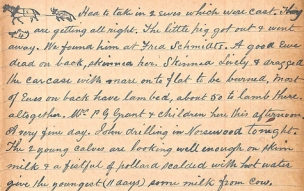 Had to take in 2 ewes which were cast. They
are getting all right. The little pig got out & went
away. We found him at Fred Schmidts. A good Ewe
dead on back, skinned her. Skinned & dragged
the carcase with mare on to flat to be burned, most
of Ewes on back have lambed, about 50 to lamb there
altogether. Mrs P G Grant & children here this afternoon.
A very fine day. John drilling in Norsewood tonight.
The 2 young calves are looking well enough on skim
milk & a fistful of pollard scalded with hot water
give the youngest (11 days) some milk from cow.